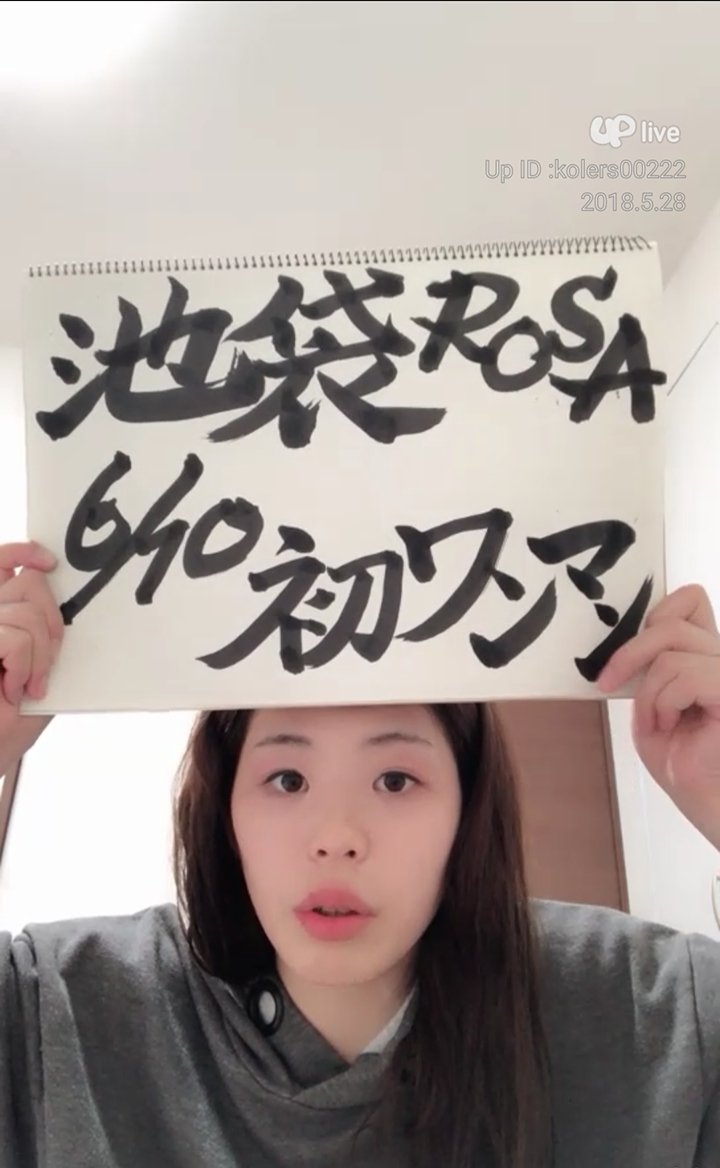 UP live
Up ID :kolers00222
2018.5.28
池袋ROSA
6/10 初ワンマン